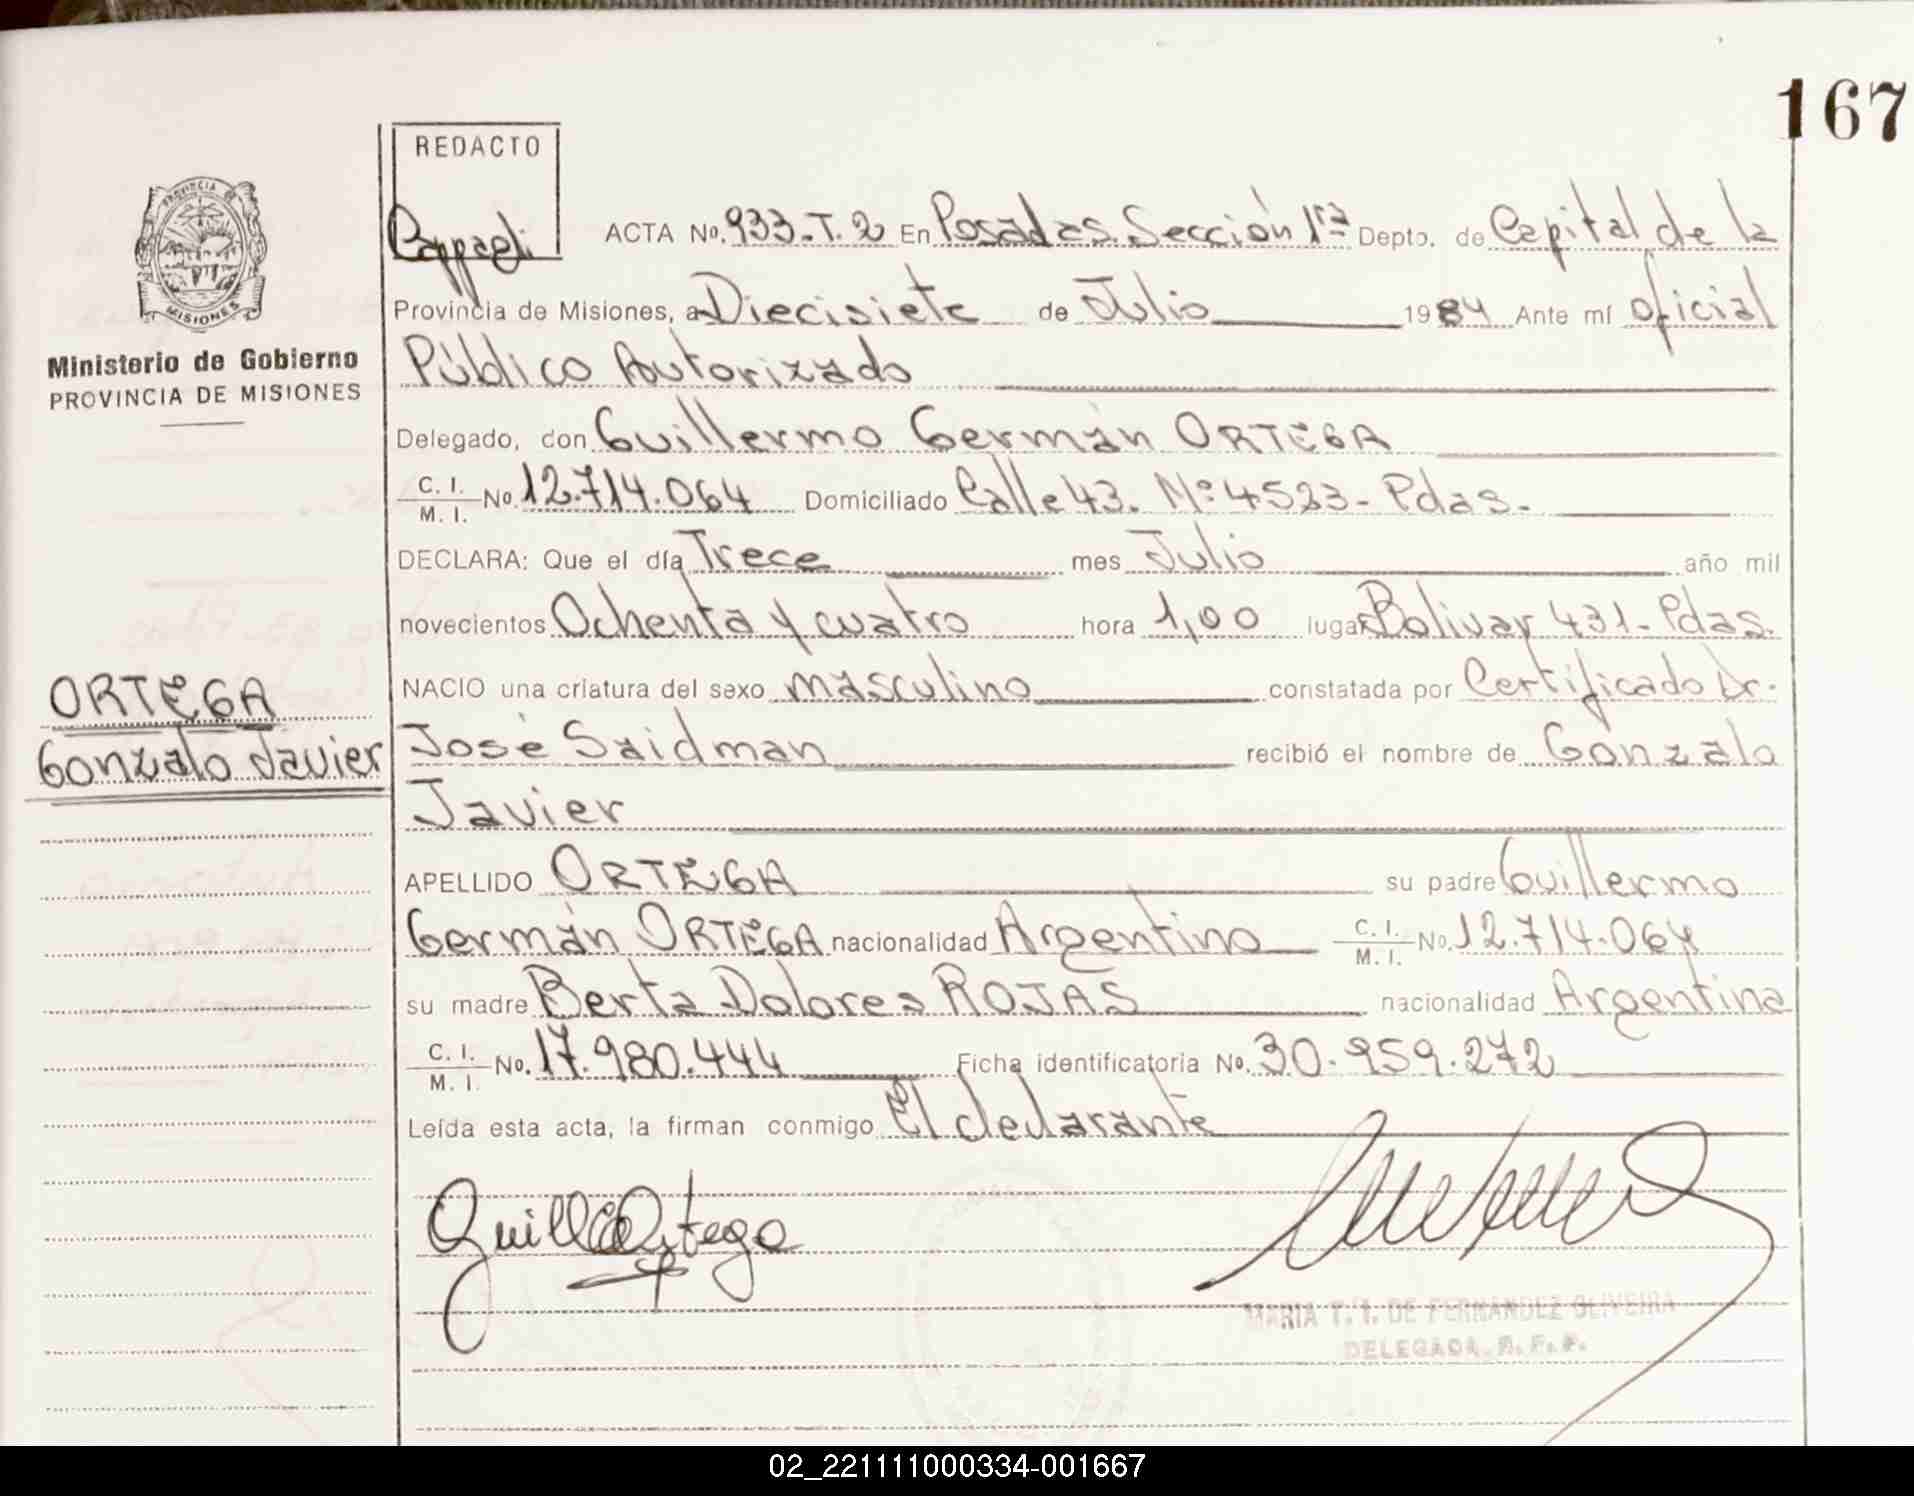 167
REDACTO
Cappagli
PROVINCIA DE
MISIONES
Ministerio de Gobierno
PROVINCIA DE MISIONES
ACTA No. 933-T.2 En Posadas. Sección 1ra Depto. de Capital de la
Provincia de Misiones, a Diecisiete de Julio 1984 Ante mí oficial
Público Autorizado
Delegado, don Guillermo Germán ORTEGA
C. I. / M. I. No. 12.714.064 Domiciliado Calle 43. Nº 4523- Pdas.
DECLARA: Que el día Trece mes Julio año mil
novecientos Ochenta y cuatro hora 1,00 lugar Bolivar 431- Pdas.
NACIO una criatura del sexo masculino constatada por Certificado Dr.
José Saidman recibió el nombre de Gonzalo
Javier
ORTEGA
Gonzalo Javier
APELLIDO ORTEGA su padre Guillermo
Germán ORTEGA nacionalidad Argentino C. I. / M. I. No. 12.714.064
su madre Berta Dolores ROJAS nacionalidad Argentina
C. I. / M. I. No. 17.980.444 Ficha identificatoria No. 30.959.272
Leída esta acta, la firman conmigo El declarante
Guill Ortega
MARIA T. I. DE FERNANDEZ OLIVEIRA
DELEGADA
02_221111000334-001667